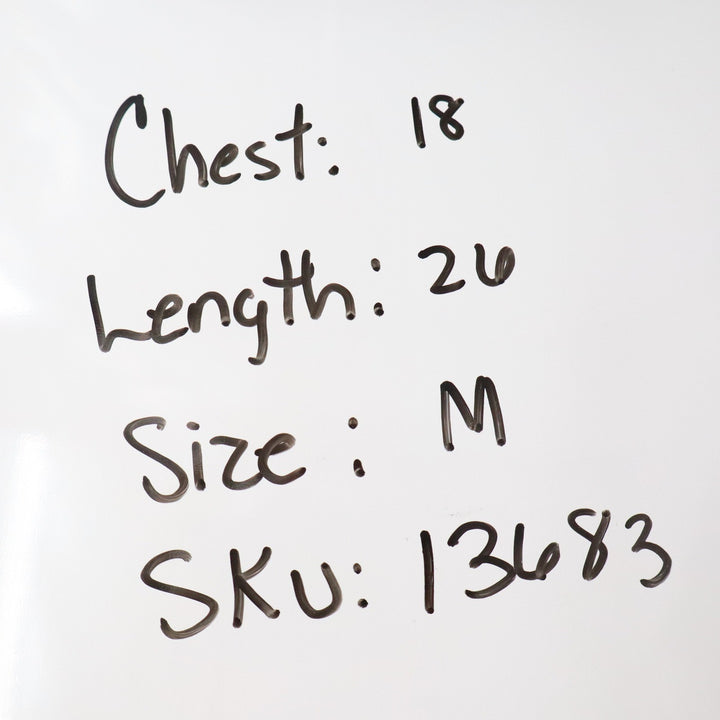 Chest: 18
Length: 26
Size: M
SKU: 13683